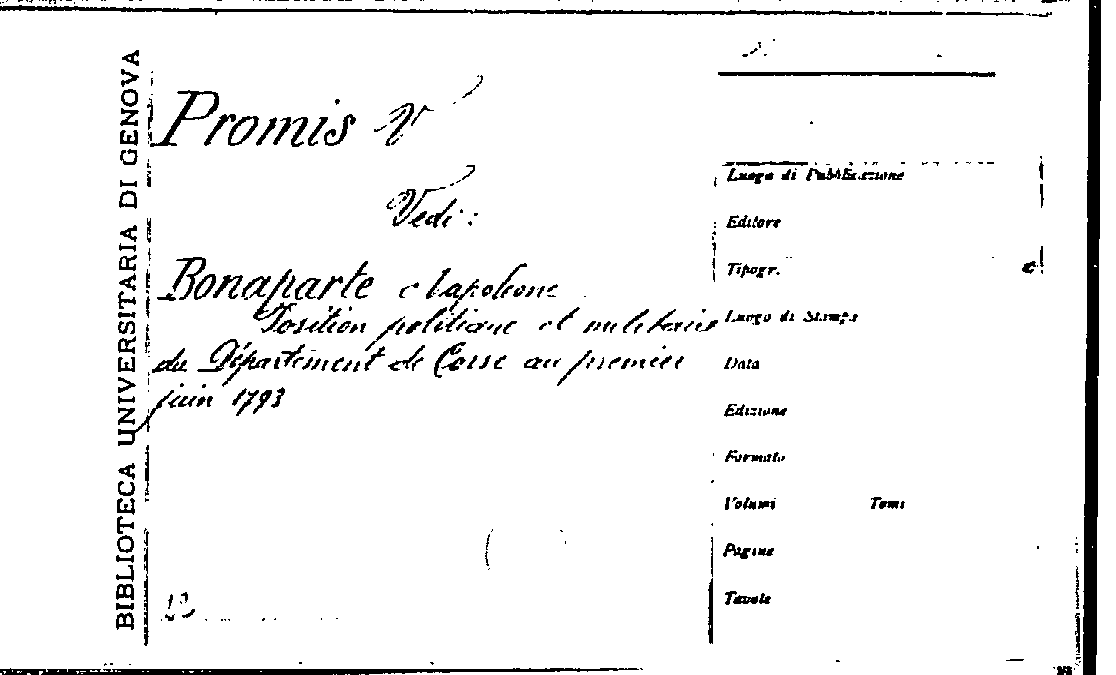 BIBLIOTECA UNIVERSITARIA DI GENOVA
Promis V
Vedi :
Bonaparte Napoleone
Position politique et militaire
du Département de Corse au premier
juin 1793
Luogo di Pubblicazione
Editore
Tipogr.
Luogo di Stampa
Data
Edizione
Formato
Volumi Tomi
Pagine
Tavole